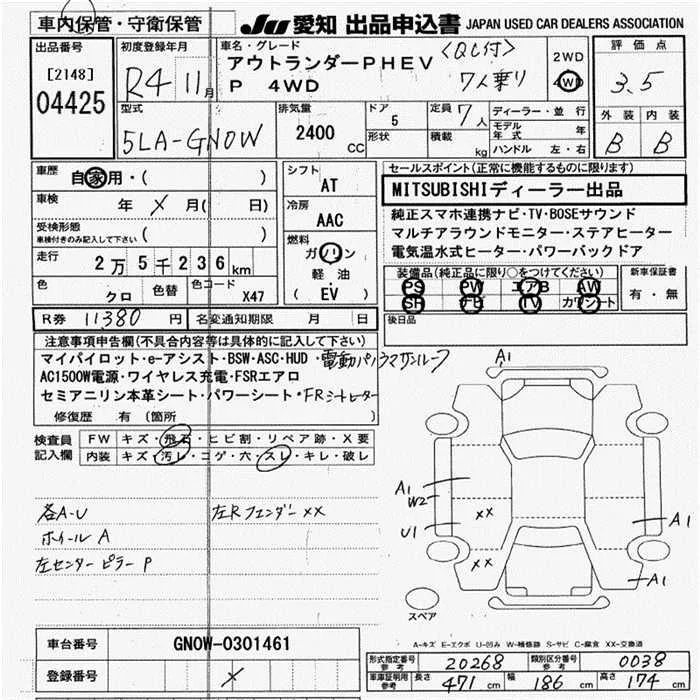 車内保管・守衛保管
JU 愛知 出品申込書 JAPAN USED CAR DEALERS ASSOCIATION
出品番号
[2148]
04425
初度登録年月
R4 11月
車名・グレード
アウトランダーPHEV <QC付>
P 4WD 7人乗り
2WD
4WD
評価点
3.5
外装 内装
B B
型式
5LA-GN0W
排気量
2400 CC
ドア 5
形状
定員 7人
積載 kg
ディーラー・並行
モデル年式 年
ハンドル 左・右
車歴
自家用・( )
車検 年 X 月( 日)
受検形態
車検付きのみ記入して下さい ( )
走行 2万5千236km
色 クロ 色替 色コード X47
シフト
AT
冷房
AAC
燃料
ガソリン
軽油
( EV )
セールスポイント(正常に機能するものに限ります)
MITSUBISHIディーラー出品
純正スマホ連携ナビ・TV・BOSEサウンド
マルチアラウンドモニター・ステアヒーター
電気温水式ヒーター・パワーバックドア
装備品(純正品に限り○をつけてください)
PS PW エアB AW
SR ナビ TV カワシート
新車保証書
有・無
R券 11380円 名変通知期限 月 日
後日品
注意事項申告欄(不具合内容等は具体的に記入して下さい)
マイパイロット・e-アシスト・BSW・ASC・HUD・電動パノラマサンルーフ
AC1500W電源・ワイヤレス充電・FSRエアロ
セミアニリン本革シート・パワーシート・FRシートヒーター
修復歴 有(箇所 )
検査員記入欄
FW キズ・飛石・ヒビ割・リペア跡・X要
内装 キズ・汚レ・コゲ・穴・スレ・キレ・破レ
各A-U 左Rフェンダー XX
ホイール A
左センターピラー P
A1
A1
W2
U1
XX
XX
A1
A1
スペア
A-キズ E-エクボ U-凹み W-補修跡 S-サビ C-腐食 XX-交換済
車台番号 GN0W-0301461
登録番号 X
形式指定番号参考 20268 類別区分番号参考 0038
車庫証明用参考 長さ 471cm 幅 186cm 高さ 174cm